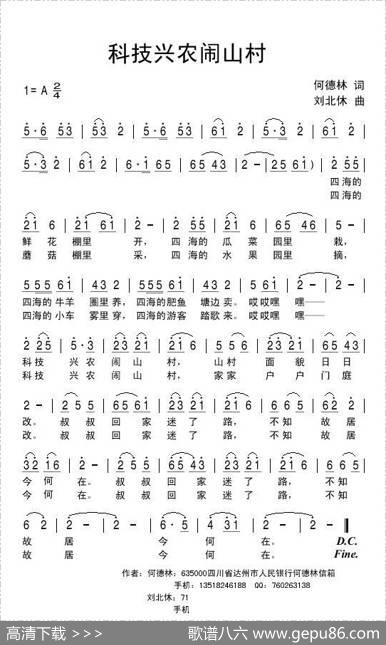 科技兴农闹山村
1= A 2/4
何德林 词
刘北休 曲
5·6 53 | 53 2 | 5·6 53 | 63 2 | 61 2 | 5·3 2 | 61 2 |
5·3 2 | 61 2 | 65 65 | 65 43 | 2 - | 25 61) | 2 55 |
四海的
四海的
21 6 | 21 61 | 2 - | 2 55 | 21 6 | 65 46 | 5 - |
鲜 花 棚里 开, 四 海的 瓜 菜 园里 栽,
蘑 菇 棚里 采, 四 海的 水 果 园里 摘,
四海的 牛羊 圈里 养, 四海的肥鱼 塘边 卖。 哎哎嘿 嘿——
四海的 小车 雾里 穿, 四海的游客 踏歌 来。 哎哎嘿 嘿——
科 技 兴 农 闹 山 村, 山 村 面 貌 日 日
科 技 兴 农 闹 山 村, 家 家 户 户 门 庭
改。 叔 叔 回 家 迷 了 路, 不 知 故 居
改。 叔 叔 回 家 迷 了 路, 不 知 故 居
今 何 在。 叔 叔 回 家 迷 了 路, 不 知
今 何 在。 叔 叔 回 家 迷 了 路, 不 知
6 2 | 2 - | 2 - | 6· 5 | 4 31 | 2 - | 2 - ‖
故 居 今 何 在。 D.C.
故 居 今 何 在。 Fine.
作者: 何德林: 635000四川省达州市人民银行何德林信箱
手机: 13518246188 QQ: 760263138
刘北休: 71
手机
高清下载 >>>
歌谱八六 www.gepu86.com